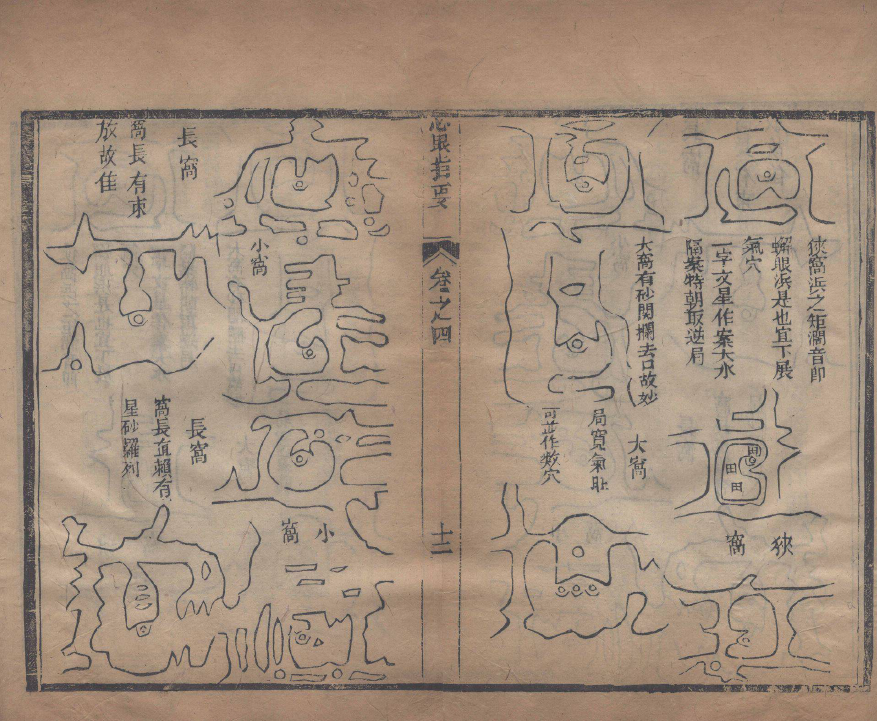 狹窩浜之矩濶音即
螂眼浜是也宜下展
氣穴
一字文星作案大水
隔案特朝取逆局
狹窩
大窩有砂関攔去口故妙
大窩
局寬氣
可並作数穴
心眼指要
卷之四
十二
小窩
小窩
長窩
窩長有束
放故佳
長窩
窩長直賴有
星砂羅列
田
田
田